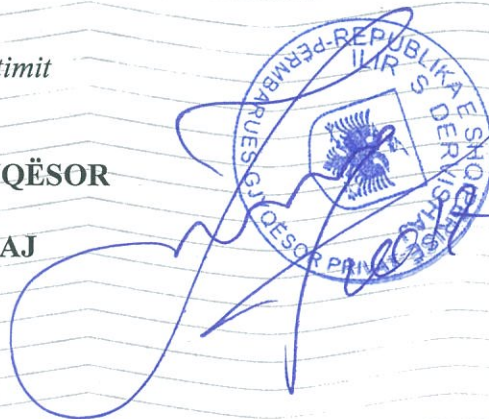 timit
QËSOR
AJ
REPUBLIKA E SHQIPËRISË
PËRMBARUES GJYQËSOR PRIVAT
ILIR S DERVISHAJ